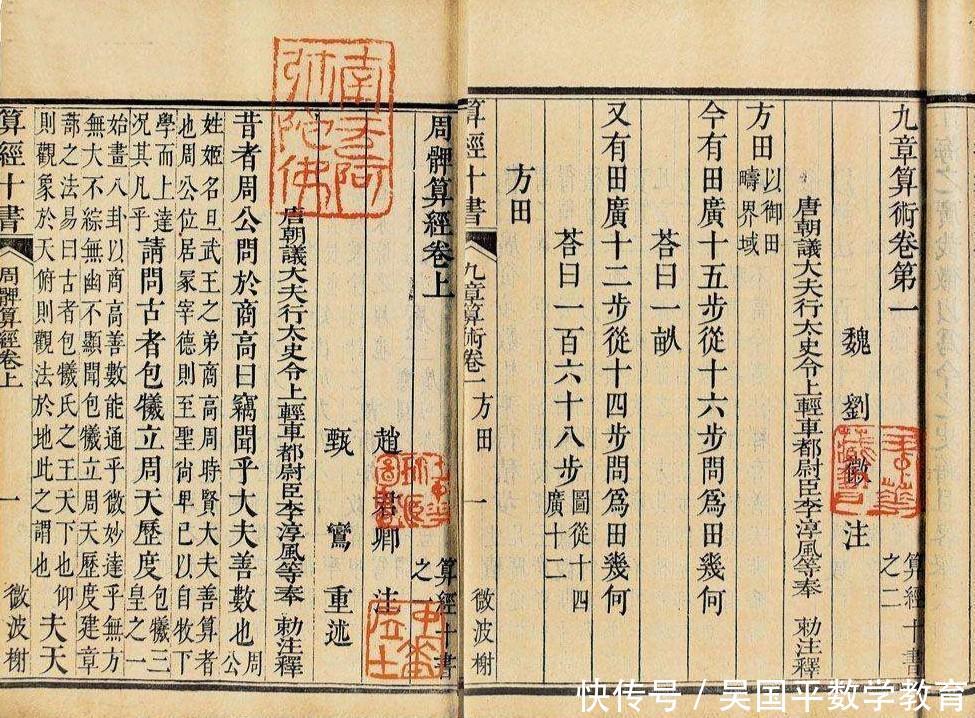 九章算術卷第一
算經十書之二
魏 劉徽 注
唐朝議大夫行太史令上輕車都尉臣李淳風等奉 勑注釋
方田以御田疇界域
今有田廣十五步從十六步問爲田幾何
荅曰一畝
又有田廣十二步從十四步問爲田幾何
荅曰一百六十八步圖從十四廣十二
方田
算經十書 九章算術卷一 方田 一 微波榭
周髀算經卷上
算經十書之一
趙君卿 注
甄鸞 重述
唐朝議大夫行太史令上輕車都尉臣李淳風等奉 勑注釋
昔者周公問於商高曰竊聞乎大夫善數也周公
姓姬名旦武王之弟商高周時賢大夫善算者
也周公位居冢宰德則至聖尙卑已以自牧下
學而上達況其凡乎請問古者包犧立周天歷度包犧三皇之一
始畫八卦以商高善數能通乎微妙達乎無方
無大不綜無幽不顯聞包犧立周天歷度建章
蔀之法易曰古者包犧氏之王天下也仰
則觀象於天俯則觀法於地此之謂也夫天
算經十書 周髀算經卷上 一 微波榭
南无阿弥陀佛
快传号／吴国平数学教育